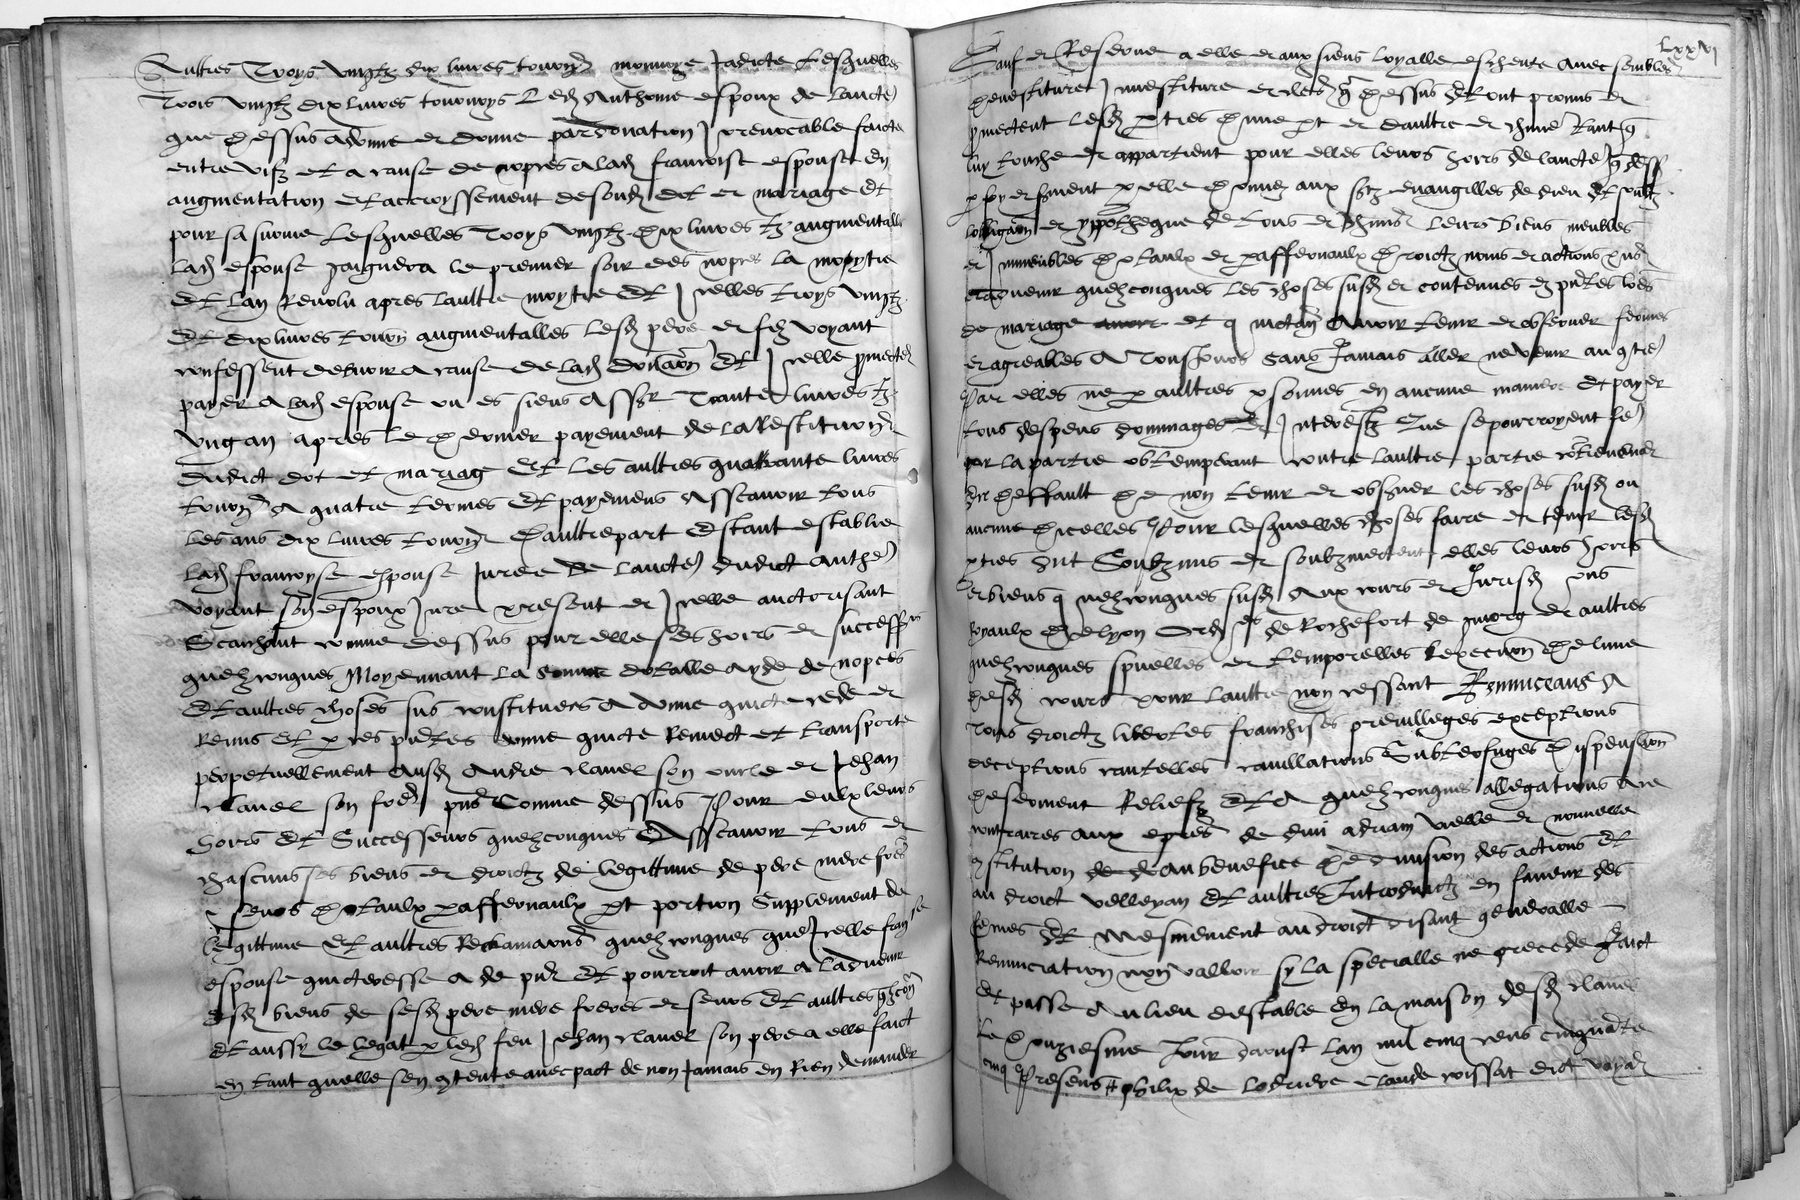 Aultres troys vingtz dix livres tournoys monnoye Jadicte lesquelles
Trois vingtz dix livres tournoys Led Anthoine espoux de laucte
que dessus a donne et donne par donation Irrevocable faicte
entre vifz et a cause de nopces a lad francoise espouse en
augmentation et accroyssement de sond dot et mariage et
pour sa survie Lesquelles Troys vingtz dix livres tz augmentalles
lad espouse gaignera le premier soir des nopces la moytie
et lan Revolu apres laultre moytie et Icelles troys vingtz
et dix livres tourn augmentalles lesd pere et filz voyant
confessent debvoir a cause de lad donaon et Icelle promectent
payer a lad espouse ou es siens Assr Trante livres tz
ung an apres le dernier payement de la Restitution
dudict dot et mariage et les aultres quarante livres
tourn a quatre termes et payemens Asscavoir tous
les ans dix livres tourn Daultrepart Estant establie
lad francoyse espouse Juree de laucte dudict Anthe
voyant son espoux Jure present et Icelle auctorisant
Scaichant comme dessus pour elle ses hoirs et successrs
quelzconques Moyennant la somme dotalle ayde de nopces
et aultres choses sus constituees a donne quicte cede et
Remis et p ces pntes donne quicte Remect et transporte
perpetuellement Ausd Andre clavel son oncle et Jehan
clavel son frere pns Comme dessus Pour eulx leurs
hoirs et Successeurs quelzconques Asscavoir tous et
chascuns ses biens et droictz de legittime de pere mere freres
seurs dotaulx paffernaulx pt portion Supplement de
legittime et aultres Reclamaons quelzconques que Icelle franse
espouse quicteresse a de pnt et pourroit avoir a ladvenir
Esd biens de sesd pere mere freres et seurs et aultres qlzcons
et aussy le legat p led feu Jehan clavel son pere a elle faict
en tant quelle sen contente avec pact de non Jamais en Rien demander
Lxxvj
Sauf et Reserve a elle et aux siens loyalle escheute Avec semblable
devestiture Investiture et cles q dessus Et ont promis et
promectent lesd pties dune pt et daultre et chune Tant q
luy touche et appartient pour elles leurs hoirs de laucte q dess
p foy et srment p elle donnez aux stz evangilles de dieu et soubz
lobligaon et yppotheque de tous et chuns leurs biens meubles
et Immeubles dotaulx et paffernaulx droictz noms et actions pns
et advenir quelzconques les choses susd et contenues en pntes lres
de mariage et quictan Avoir tenir et observer fermes
et agreables A Tousjours sans Jamais aller ne venir au contre
Par elles ne p aultres psonnes en aucune maniere et payer
tous despens dommages et Interestz Que se pourroyent fe
par la partie obtemperant contre laultre partie contrevenir
et deffault de non tenir et observer les choses susd ou
aucune dicelles Pour lesquelles choses faire et tenir lesd
pties ont Soubzmis et soubzmectent elles leurs hoirs
et biens quelzconques susd Aux cours et Jurisd pns
Royaulx de lyon de Rochefort de et aultres
quelzconques spuelles et temporelles lexecuon de lune
desd cours pour laultre non cessant Renunceans A
Tous droictz libertes franchises previlleges exceptions
deceptions cautelles cavillations Subterfuges dispensaon
de serment Reliefz et a quelzconques allegations a ce
contraires aux epres de divi adriani vielle et nouvelle
constitution de au benefice de division des actions et
au droict velleyan et aultres Introduictz en faveur des
femes Et Mesmement au droict disant generalle
Renunciation non valloir sy la specialle ne precede faict
et passe Au lieu destable En la maison desd clavel
le douziesme Jour daoust lan mil cinq cens cinquante
cinq Presens philix de Claude dict